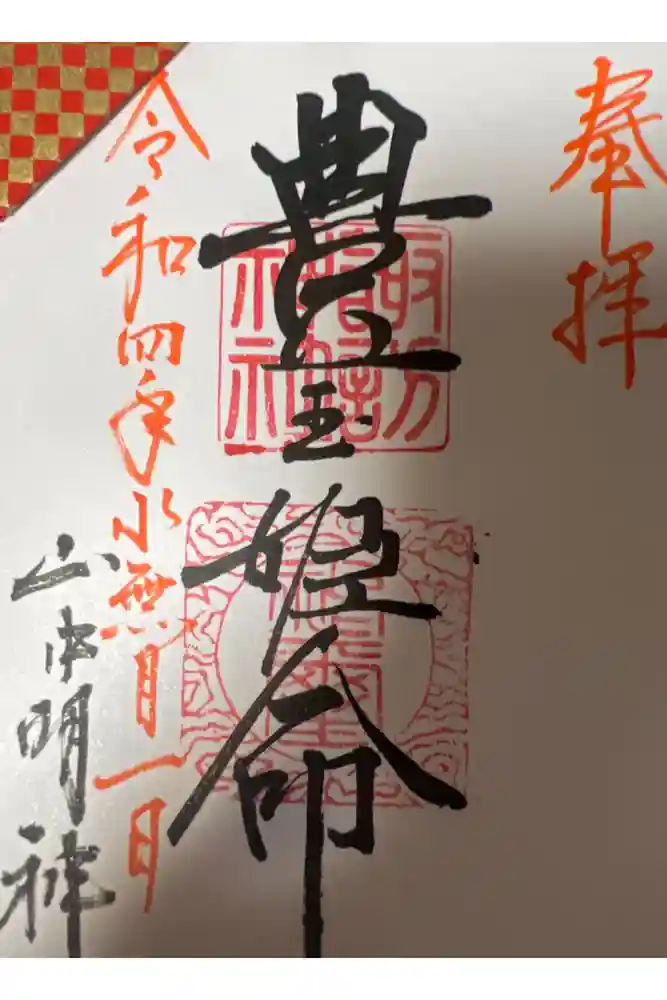 奉拝
豊玉姫命
令和四年水無月一日
山本明祥